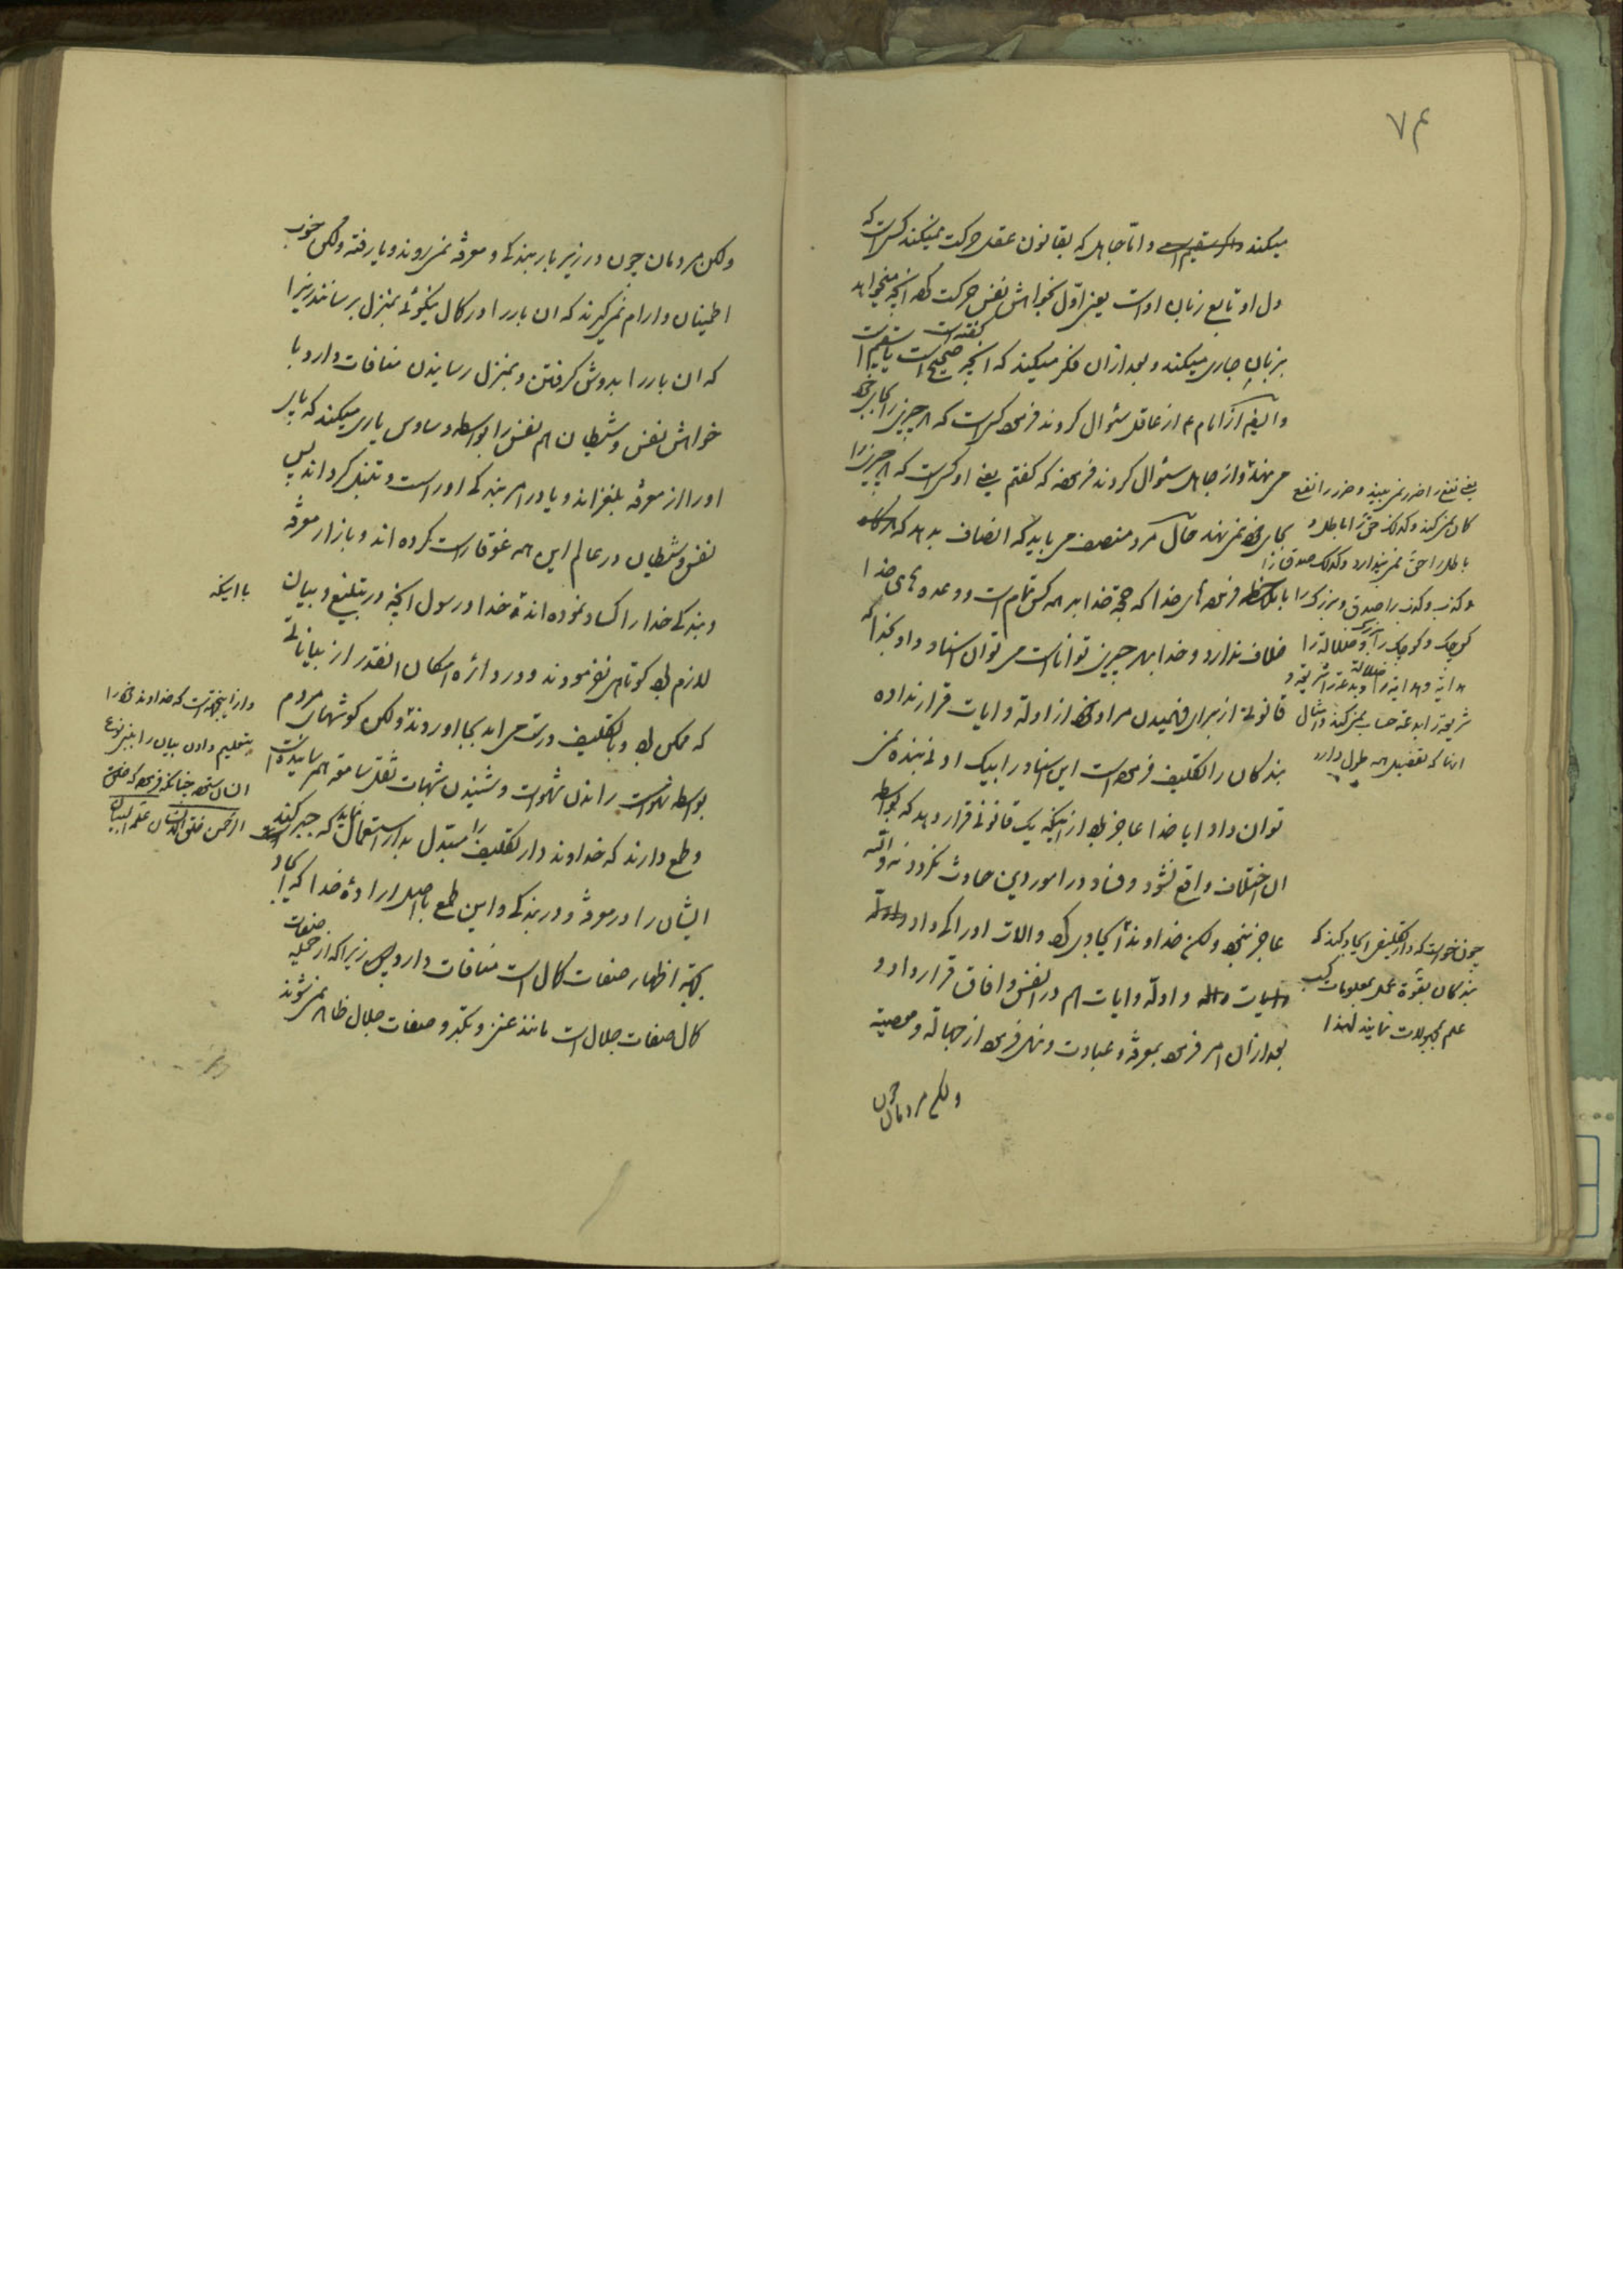 ۷۴
میکند و اما جاهل که بقانون عقل حرکت نمیکند کسی است که
دل او تابع زبان اوست یعنی اول بخواهش نفس حرکت کرده آنچه میخواهد
بزبان جاری میکند و بعد از آن فکر میکند که آنچه گفته است صحیح است یا سقیم است
و ایضا از امام ع از عاقل سئوال کردند فرمود کسی است که هر چیز را بجای خود
می نهد و از جاهل سئوال کردند فرمود که گفتم یعنی او کسی است که هر چیز را
بجای خود نمی نهد حال مرد منصف می باید که انصاف بدهد که
با فرموده های خدا که حجة خدا بر همه کس تمام است و وعده های خدا
خلاف ندارد و خدا بهر چیزی تواناست می توان اسناد داد بخدا که
قانونی از برای فهمیدن مراد خود از ادله و ایات قرار نداده
بندگان را تکلیف فرموده است این اسناد را بیک ادنی بنده نمی
توان داد ایا خدا عاجز بود از اینکه یک قانونی قرار دهد که بواسطه
ان اختلاف واقع نشود و فساد در امور دین حادث نگردد نه والله
عاجز نبود ولکن خداوند ایجاد کرد و الات ادراک داد
و ادله و ایات هم در انفس و افاق قرار داد و
بعد از ان امر فرمود بمعرفة و عبادت و نهی فرمود از جهالة و معصیة
ولکن مردمان چون
یعنی نفع را ضرر نمی بیند و ضرر را نفع
گمان نمی کند و کذلک حق را باطل و
باطل را حق نمی پندارد و کذلک صدق را
کذب و کذب را صدق و بزرگ را
کوچک و کوچک را بزرگ و ضلالة را
هدایة و هدایة را ضلالة و بدعة را شریعة و
شریعة را بدعة حساب نمی کند و امثال
اینها که تفصیل همه طول دارد
چون خواست که دار تکلیفی ایجاد کند که
بندگان بقوة عمل بمعلومات کسب
علم بمجهولات نمایند لهذا
ولکن مردمان چون در زیر بار بندگی و معرفة نمی روند و یا رفته ولکن خوب
اطمینان و ارام نمی گیرند که ان بار را در کمال نیکوئی بمنزل برسانند زیرا
که ان بار را بدوش گرفتن و بمنزل رسانیدن منافات دارد با
خواهش نفس و شیطان هم نفس را بواسطه وساوس یاری میکند که پای
او را از معرفة بلغزاند و یا در امر بندگی او را سست و تنبل گرداند پس
نفس و شیطان در عالم این همه غوغا راست کرده اند و بازار معرفة
و بندگی خدا را کساد نموده اند خدا و رسول آنچه در تبلیغ و بیان
لازم بود کوتاهی نفرمودند و در دائره امکان انقدر از بیاناتی
که ممکن بود و با تکلیف درست می امد بجا اوردند ولکن گوشهای مردم
بواسطه شهوات راندن و شنیدن شبهات ثقل سامعه بهم رسانیده است
و طمع دارند که خداوند دار تکلیف را مبدل بدار استعمال نماید که جبر کند
ایشان را در معرفة و در بندگی و این طمع با اصل اراده خدا که ایجاد
بجهة اظهار صفات کمال است منافات دارد زیرا که از جمله صفات
کمال صفات جلال است مانند غضب و تکبر و صفات جلال ظاهر نمی شوند
با اینکه
و از اینجهة است که خداوند خود را
بتعلیم دادن بیان را بنوع
انسان ستوده چنانکه فرموده که
الرحمن خلق الانسان علمه البیان